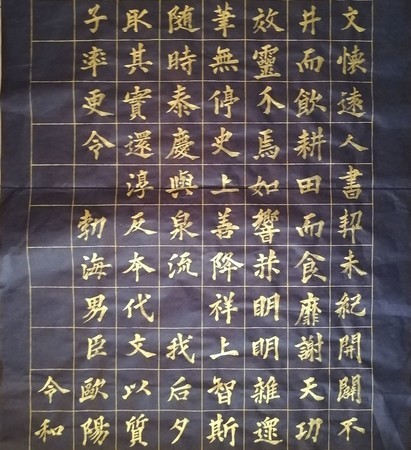 文懐遠人書契未紀開闢不
井而飲耕田而食靡謝天功
效靈介焉如響明明雜遝
筆無停史上善降祥上智斯
随時泰慶與泉流 我后夕
取其實還淳反本代文以質
子率更令 勃海男臣歐陽
令和